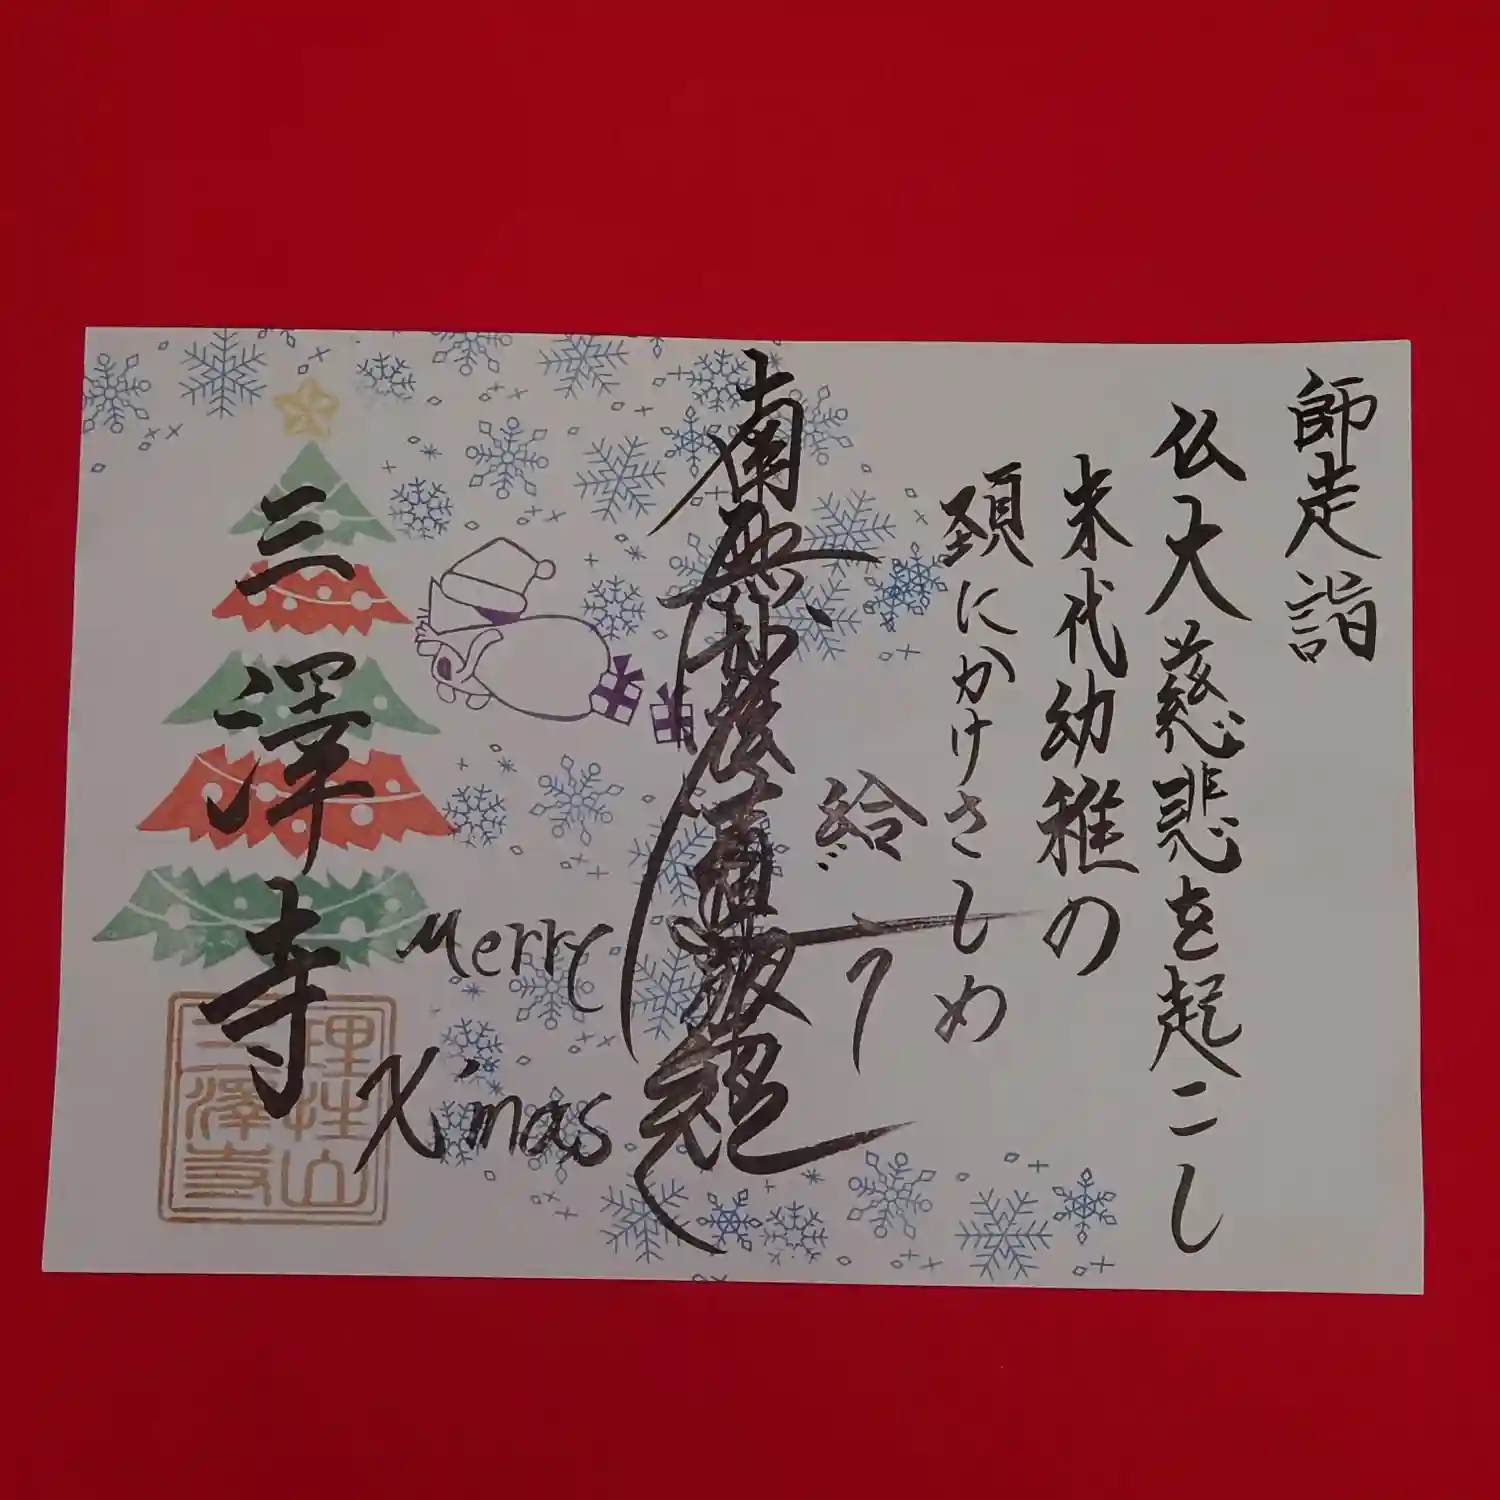 師走詣
仏大慈悲を起こし
末代幼稚の
頚にかけさしめ
給う
南無妙法蓮華経
三澤寺
Merry
X'mas
理性山
三澤寺